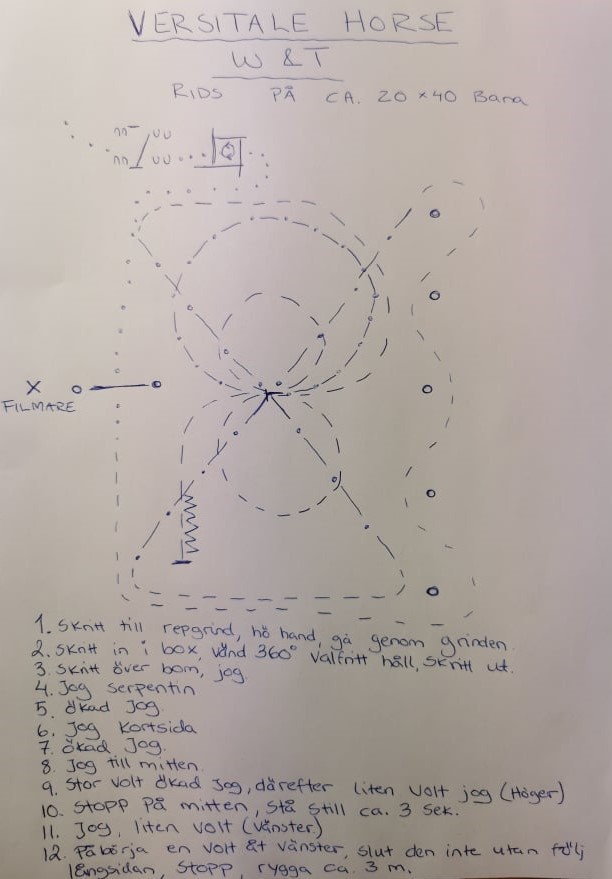 VERSITALE HORSE
W & T
RIDS PÅ CA. 20 × 40 Bana
X
FILMARE
1. Skritt till repgrind, hö hand, gå genom grinden.
2. Skritt in i box, vänd 360° valfritt håll, skritt ut.
3. Skritt över bom, jog.
4. Jog serpentin
5. Ökad jog.
6. Jog kortsida
7. Ökad Jog.
8. Jog till mitten.
9. Stor volt ökad jog, därefter liten volt jog (Höger)
10. Stopp på mitten, stå still ca. 3 sek.
11. Jog, liten volt (vänster)
12. Påbörja en volt åt vänster, slut den inte utan följ
långsidan, stopp, rygga ca. 3 m.